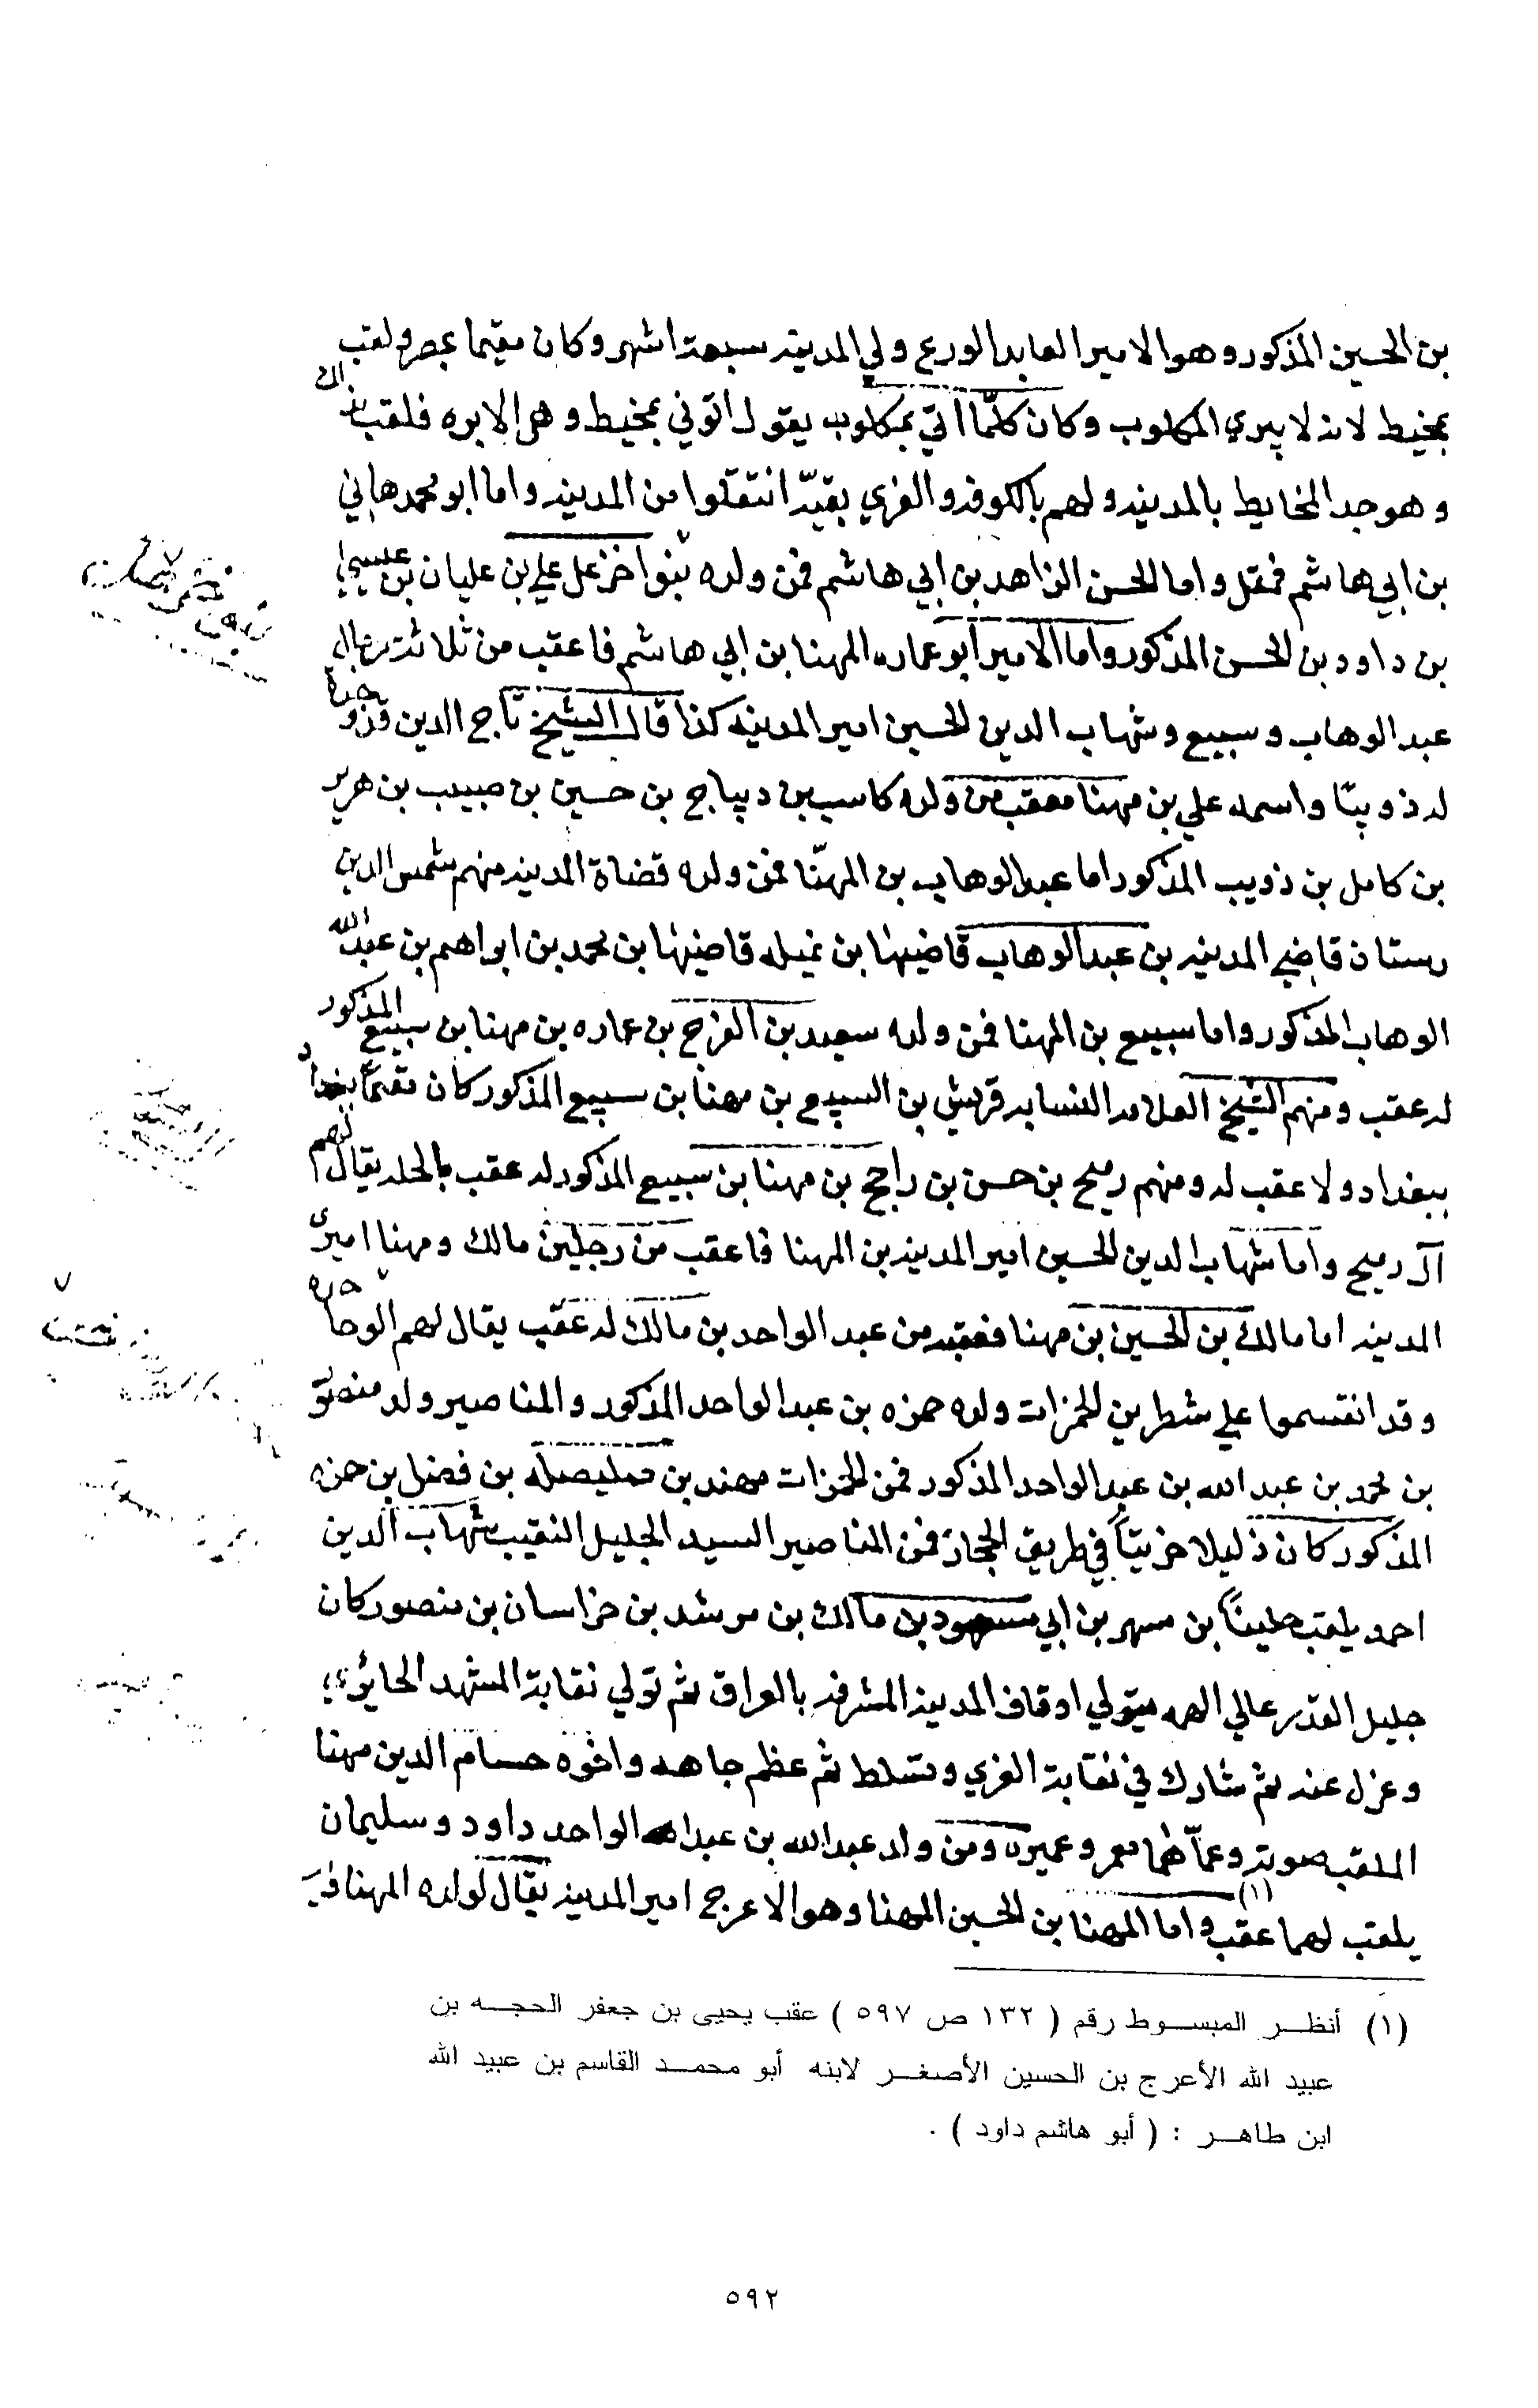 بن الحسين المذكور وهو الامير العابد الورع ولي المدينه سبعة اشهر وكان مقيما بمصر ولقب
بمخيط لانه لا يبري المكلوب وكان كلّما اتي بمكلوب يقول اتوني بمخيط وهي الابره فلقب بذلك
وهو جد المخايط بالمدينه ولهم بالكوفه والغري بقيّه انتقلوا من المدينه واما ابو محمد هاني
بن ابي هاشم فمقل واما الحسن الزاهد بن ابي هاشم فمن ولده بنو اخزعل علي بن عليان بن عيسى
بن داود بن الحسن المذكور واما الامير ابو عماره المهنا بن ابي هاشم فاعقب من ثلاثة رجال
عبد الوهاب وسبيع وشهاب الدين الحسين امير المدينه كذا قال الشيخ تاج الدين
له ذويبّا واسمه علي بن مهنا معقب من ولده كاسب بن ديباج بن حسين بن حبيب بن هرير
بن كامل بن ذويب المذكور اما عبد الوهاب بن المهنّا فمن ولده قضاة المدينه منهم شمس الدين
رستان قاضي المدينه بن عبد الوهاب قاضيها بن نميله قاضيها بن محمد بن ابراهم بن عبد الله
الوهاب المذكور واما سبيع بن المهنا فمن ولده سعيد بن الفرج بن عماره بن مهنا بن سبيع المذكور
له عقب ومنهم الشيخ العلامه النسابه قريش بن السبيع بن مهنا بن سبيع المذكور كان مقيماً ببغداد
ببغداد ولا عقب له ومنهم رميح بن حسن بن راجح بن مهنا بن سبيع المذكور له عقب بالحله يقال لهم
آل رميح واما شهاب الدين الحسين امير المدينه بن المهنا فاعقب من رجلين مالك ومهنا اميري
المدينه اما مالك بن الحسين بن مهنا فعقبه من عبد الواحد بن مالك له عقب يقال لهم الوحاحده
وقد انقسموا علي شطرين الحمزات ولده حمزه بن عبد الواحد المذكور والمناصير ولد منصور
بن محمد بن عبد الله بن عبد الواحد المذكور فمن الحمزات مهند بن صليصله بن فضل بن حمزه
المذكور كان ذليلا خريتاً في طريق الحجاز فمن المناصير السيد الجليل النقيب شهاب الدين
احمد يلقب حليتاً بن مسهر بن ابي مسعود بن مالك بن مرشد بن خراسان بن منصور كان
جليل القدر عالي الهمه ميتولي اوقاف المدينه المشرفه بالعراق ثم تولي نقابة المشهد الحايري
وعزل عنه ثم شارك في نقابة الغري وتسلط ثم عظم جاهه واخوه حسام الدين مهنا
الملقب صوته وعمّاهما معمر وعميره ومن ولد عبد الله بن عبد الواحد داود وسليمان
يلقب لهما عقب (١) واما المهنا بن الحسين المهنا وهو الاعرج امير المدينه يقال لولده المهنا
(١) أنظر المبسوط رقم ( ١٣٢ ص ٥٩٧ ) عقب يحيى بن جعفر الحجه بن
عبيد الله الأعرج بن الحسين الأصغر لابنه أبو محمد القاسم بن عبيد الله
ابن طاهر : ( أبو هاشم داود ) .
٥٩٢